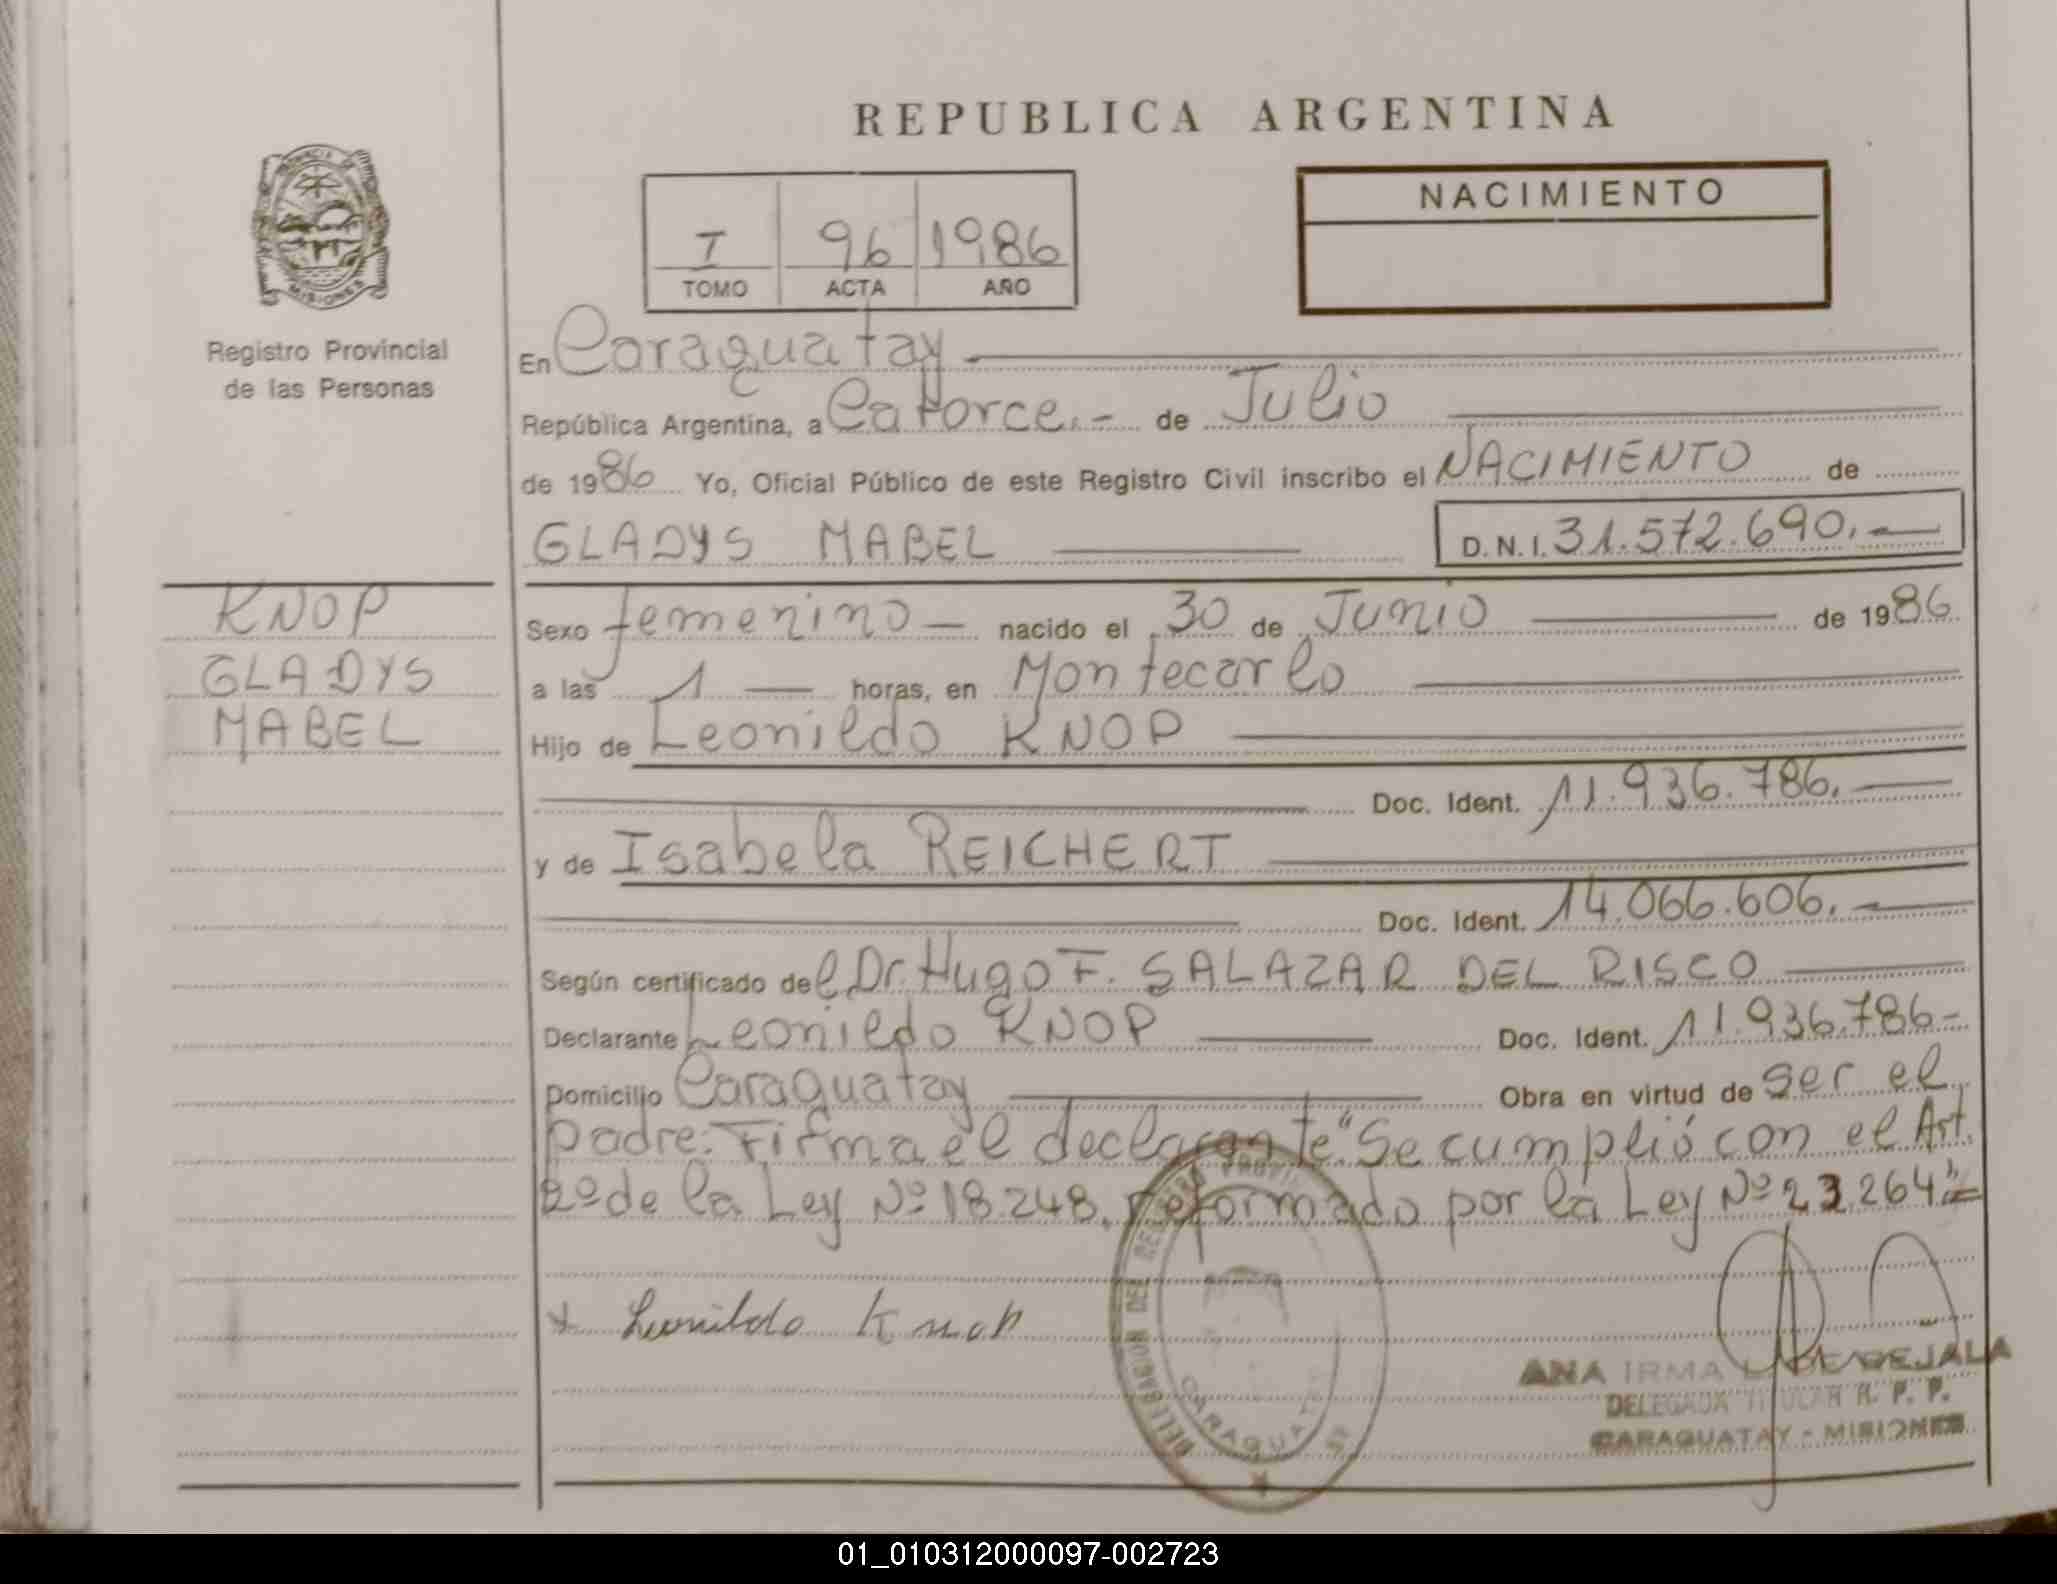 REPUBLICA ARGENTINA
PROVINCIA DE
MISIONES
Registro Provincial
de las Personas
I 96 1986
TOMO ACTA AÑO
NACIMIENTO
En Caraguatay
República Argentina, a Catorce.- de Julio
de 1986 Yo, Oficial Público de este Registro Civil inscribo el NACIMIENTO de
GLADYS MABEL D.N.I. 31.572.690.-
KNOP
GLADYS
MABEL
Sexo femenino - nacido el 30 de Junio de 1986
a las 1 - horas, en Montecarlo
Hijo de Leonildo KNOP
Doc. Ident. 11.936.786.-
y de Isabela REICHERT
Doc. Ident. 14.066.606.-
Según certificado del Dr. Hugo F. SALAZAR DEL RISCO
Declarante Leonildo KNOP Doc. Ident. 11.936.786-
Domicilio Caraguatay Obra en virtud de ser el
padre: Firma el declarante "Se cumplió con el Art.
2º de la Ley Nº 18.248, reformado por la Ley Nº 23.264"=
x Leonildo Knop
DELEGACION DEL REGISTRO
CARAGUATAY
ANA IRMA
DELEGADA TITULAR R. P. P.
CARAGUATAY - MISIONES
01_010312000097-002723